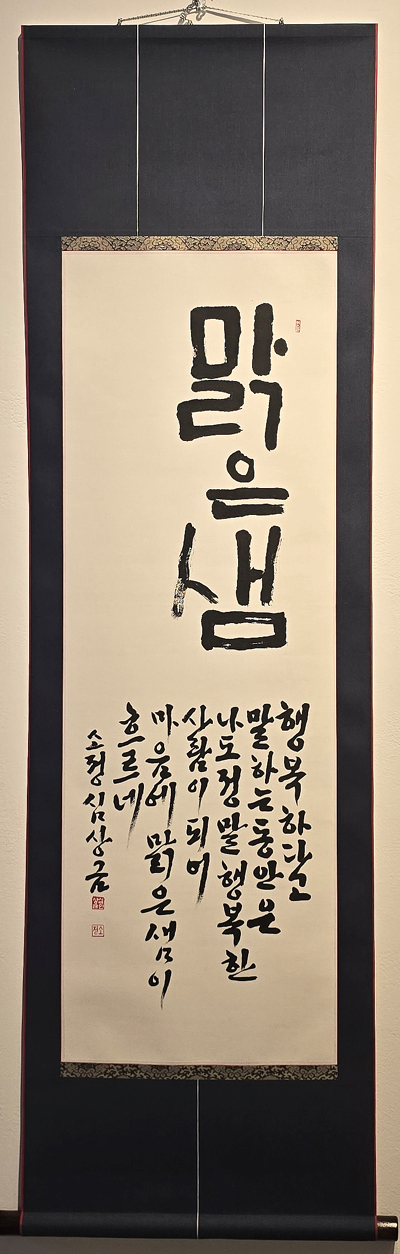 맑은샘
행복하다고
말하는동안은
나도정말행복한
사람이되어
마음에맑은샘이
흐르네
소정심상금